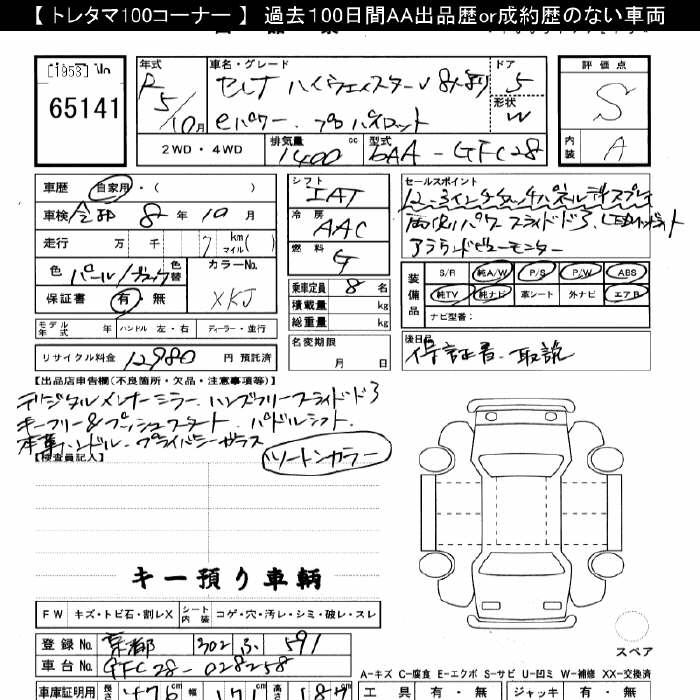 【 トレタマ100コーナー 】 過去100日間AA出品歴or成約歴のない車両
65141
年式
R5/10月
車名・グレード
セレナ ハイウェイスターV 8人乗り
eパワー プロパイロット
ドア
5
形状
W
評価点
S
内装
A
2WD ・ 4WD
排気量
1400 cc
型式
6AA-GFC28
車歴 自家用 ・ ( )
車検 令和 8 年 10 月
走行 万 千 7 km マイル( )
色 パール/ブラック 色替
カラーNo.
XKJ
保証書 有・無
シフト
IAT
冷房
AAC
燃料
G
乗車定員 8 名
積載量 kg
総重量 kg
名変期限
月 日
セールスポイント
12.3インチタッチパネルディスプレイ
両側パワースライドドア、LEDヘッドライト
アラウンドビューモニター
装備品
S/R 純A/W P/S P/W ABS
純TV 純ナビ 革シート 外ナビ エアB
ナビ型番:
モデル年式 年 ハンドル 左・右 ディーラー・並行
リサイクル料金 12980 円 預託済
後日品
保証書・取説
【出品店申告欄(不良箇所・欠品・注意事項等)】
デジタルインナーミラー、ハンズフリースライドドア
キーフリー&プッシュスタート、パドルシフト、
本革ハンドル・プライバシーガラス
ツートンカラー
【検査員記入】
キー預り車輌
FW キズ・トビ石・割レX シート内装 コゲ・穴・汚レ・シミ・破レ・スレ
登録No. 京都 302 ふ 591
車台No. GFC28-028258
スペア
A-キズ C-腐食 E-エクボ S-サビ U-凹ミ W-補修 XX-交換済
車庫証明用
工具 有・無 ジャッキ 有・無